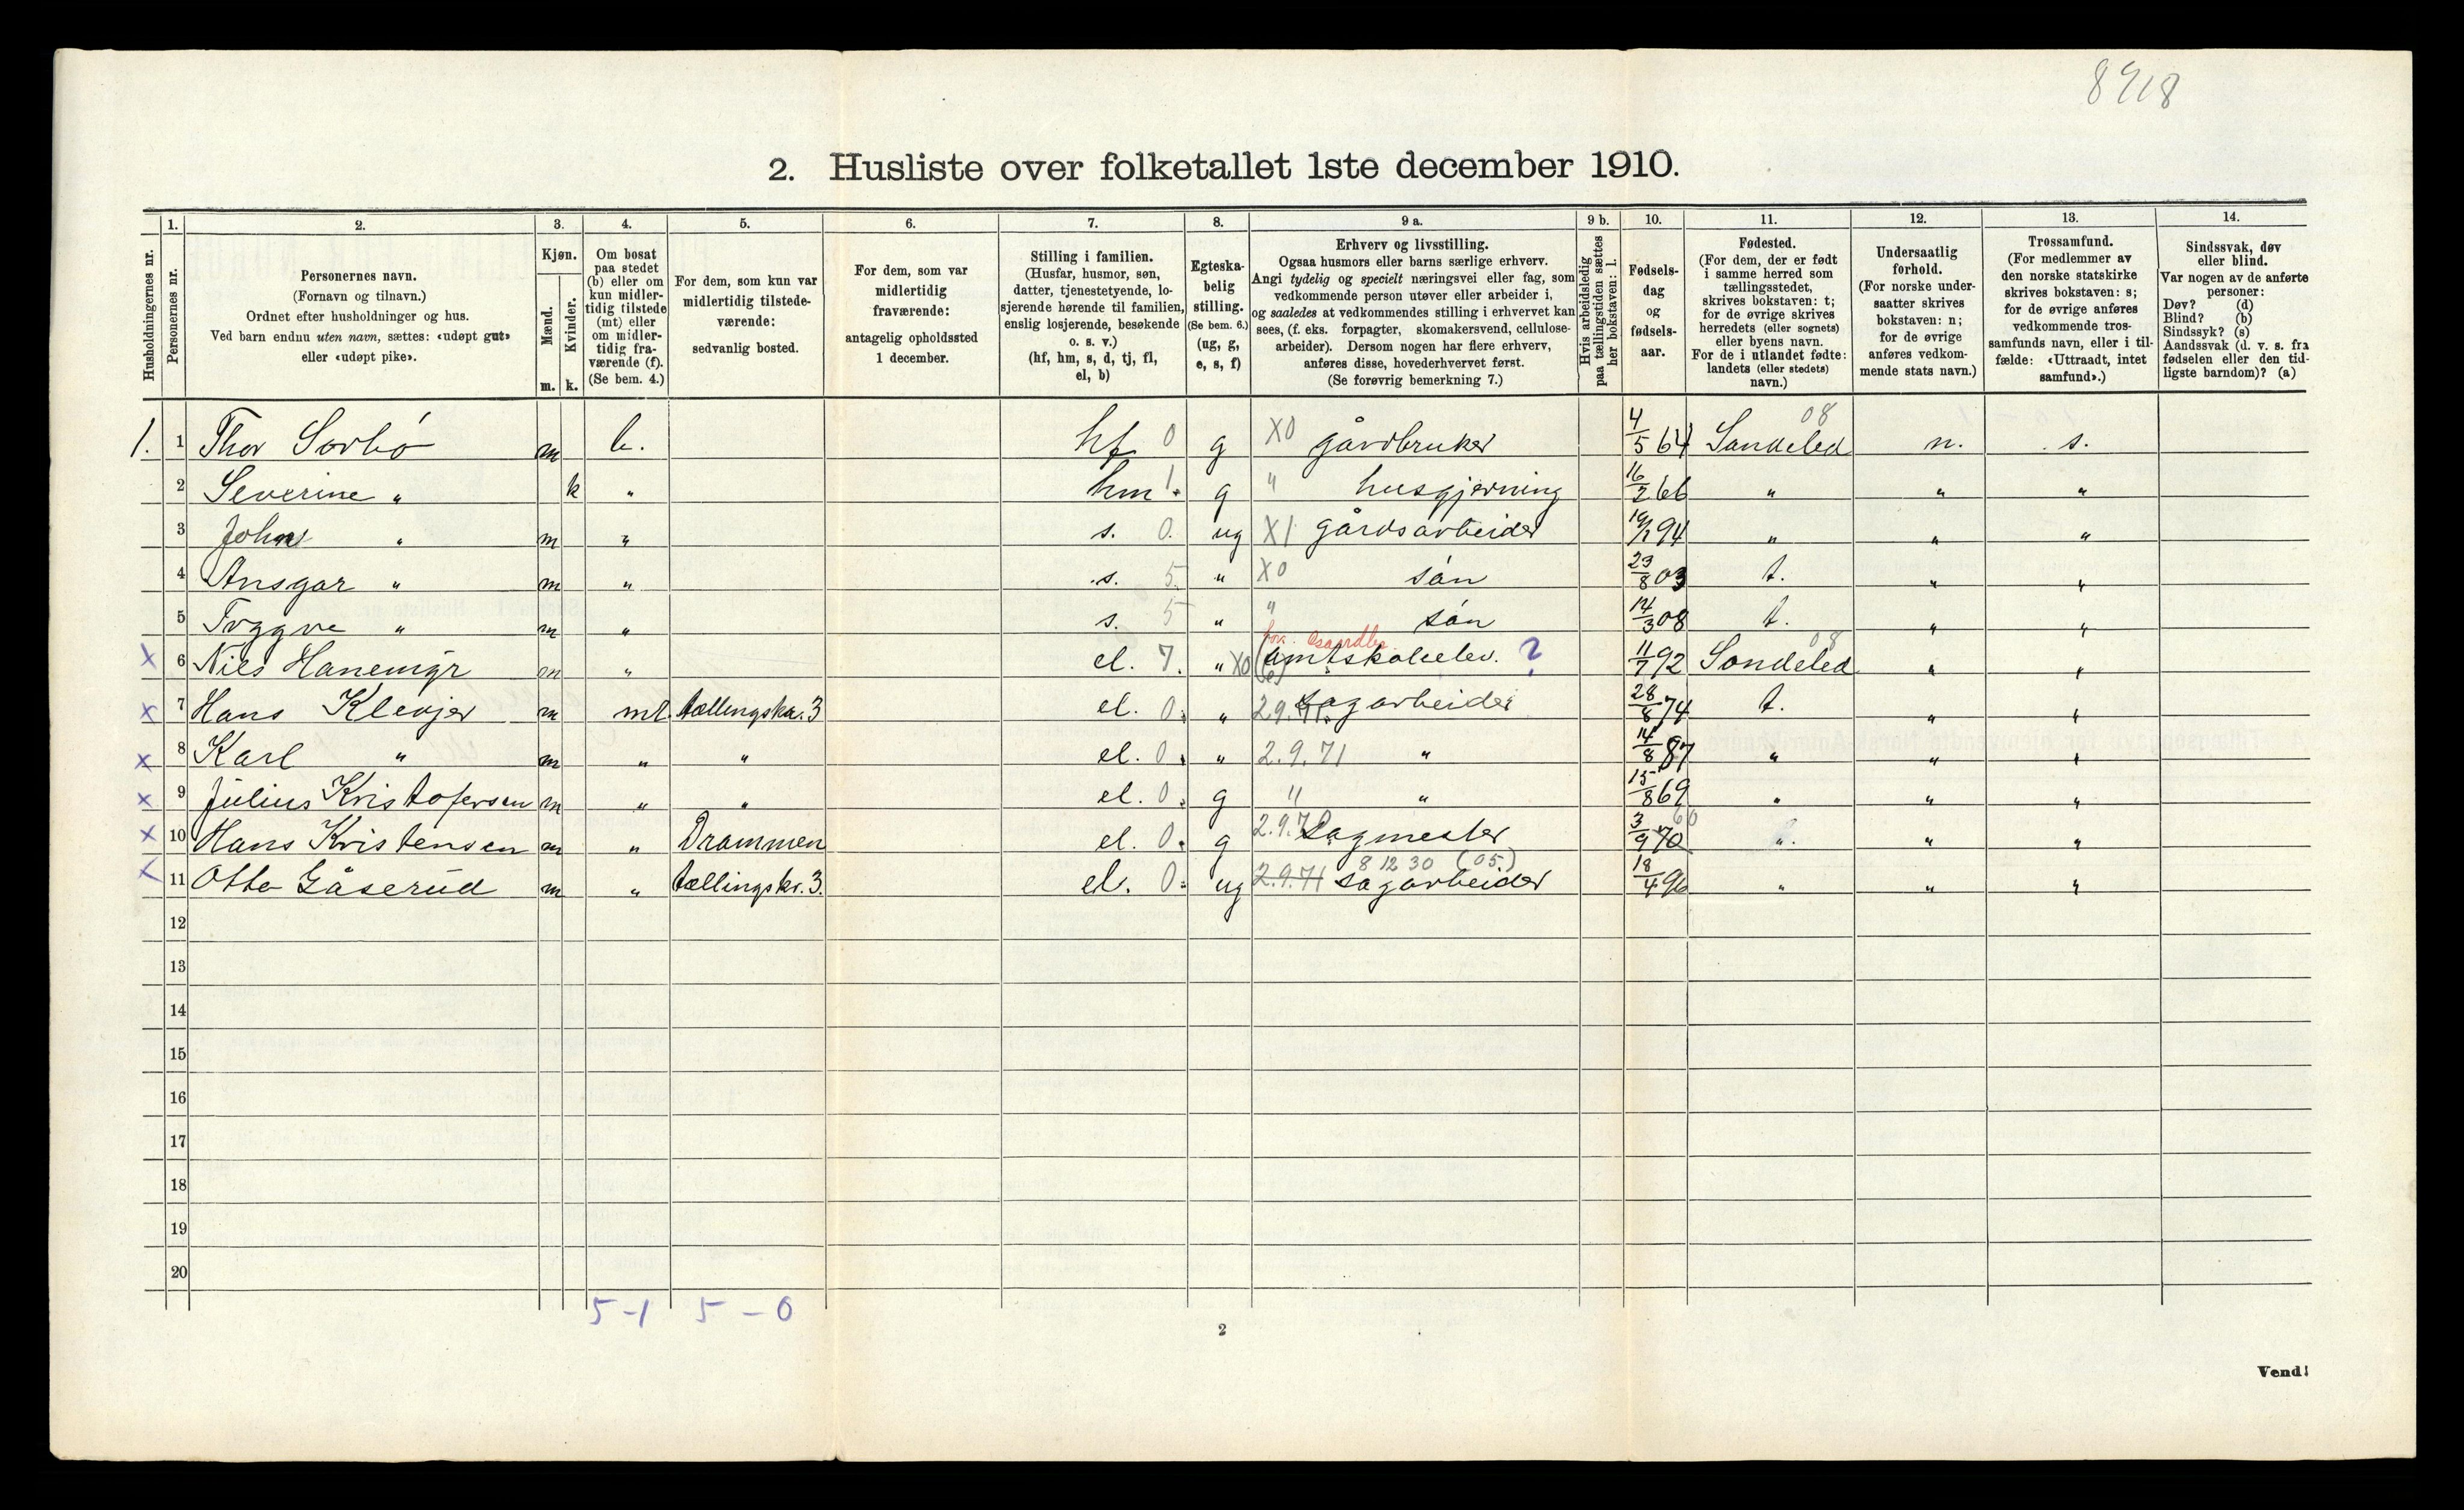 8918
2. Husliste over folketallet 1ste december 1910.
Husholdningernes nr.
1.
Personernes nr.
2.
Personernes navn.
(Fornavn og tilnavn.)
Ordnet efter husholdninger og hus.
Ved barn endnu uten navn, sættes: «udøpt gut»
eller «udøpt pike».
3.
Kjøn.
Mænd.
Kvinder.
m. k.
4.
Om bosat
paa stedet
(b) eller om
kun midler-
tidig tilstede
(mt) eller
om midler-
tidig fra-
værende (f).
(Se bem. 4.)
5.
For dem, som kun var
midlertidig tilstede-
værende:
sedvanlig bosted.
6.
For dem, som var
midlertidig
fraværende:
antagelig opholdssted
1 december.
7.
Stilling i familien.
(Husfar, husmor, søn,
datter, tjenestetyende, lo-
sjerende hørende til familien,
enslig losjerende, besøkende
o. s. v.)
(hf, hm, s, d, tj, fl,
el, b)
8.
Egteska-
belig
stilling.
(Se bem. 6.)
(ug, g,
e, s, f)
9 a.
Erhverv og livsstilling.
Ogsaa husmors eller barns særlige erhverv.
Angi tydelig og specielt næringsvei eller fag, som
vedkommende person utøver eller arbeider i,
og saaledes at vedkommendes stilling i erhvervet kan
sees, (f. eks. forpagter, skomakersvend, cellulose-
arbeider). Dersom nogen har flere erhverv,
anføres disse, hovederhvervet først.
(Se forøvrig bemerkning 7.)
9 b.
Hvis arbeidsledig
paa tællingstiden sættes
her bokstaven: l.
10.
Fødsels-
dag
og
fødsels-
aar.
11.
Fødested.
(For dem, der er født
i samme herred som
tællingsstedet,
skrives bokstaven: t;
for de øvrige skrives
herredets (eller sognets)
eller byens navn.
For de i utlandet fødte:
landets (eller stedets)
navn.)
12.
Undersaatlig
forhold.
(For norske under-
saatter skrives
bokstaven: n;
for de øvrige
anføres vedkom-
mende stats navn.)
13.
Trossamfund.
(For medlemmer av
den norske statskirke
skrives bokstaven: s;
for de øvrige anføres
vedkommende tros-
samfunds navn, eller i til-
fælde: «Uttraadt, intet
samfund».)
14.
Sindssvak, døv
eller blind.
Var nogen av de anførte
personer:
Døv? (d)
Blind? (b)
Sindssyk? (s)
Aandssvak (d. v. s. fra
fødselen eller den tid-
ligste barndom)? (a)
1. 1 Thor Sorbö m b. hf 0 g X0 gårdbruker 4/5 64 Sandeled 08 n. s.
2 Severine " k " hm 1. g " husgjerning 16/2 66 " " "
3 John " m " s. 0. ug X1 gårdsarbeider 94 " " "
4 Ansgar " m " s. 5. " X0 sön 23/8 03 t. " "
5 Tryggve " m " s. 5 " " sön 14/3 08 t. " "
x 6 Niels Hanemyr m " el. 7. " X0 amtskoleelev. ? 11/7 92 Sondeled 08 " "
x 7 Hans Klevjer m mt. tællingskr. 3 el. 0. " 2.9.71. sagarbeider 28/8 74 t. " "
x 8 Karl " m " " el. 0. " 2.9.71 " 14/8 87 " " "
x 9 Julius Kristofersen m " " el. 0. g " " 15/8 69 " " "
x 10 Hans Kristensen m " Drammen el. 0. g 2.9.70 sagmester 3/9 70 60 " " "
x 11 Otto Gåserud m " tællingskr. 3. el. 0. ug 2.9.71 8 12 30 (05.) sagarbeider 18/4 96 " " "
12
13
14
15
16
17
18
19
20
5-1 5-0
2
Vend!